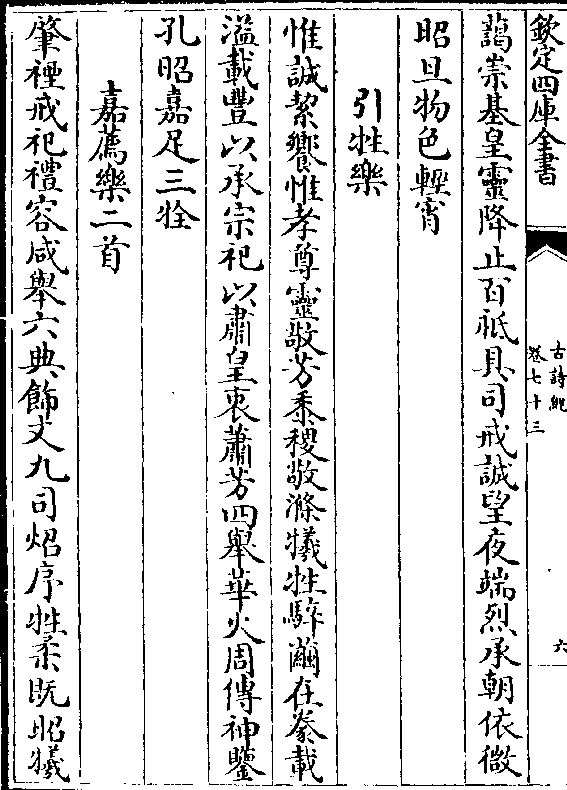 欽定四庫全書
古詩紀
卷七十三
六
藹崇基皇靈降止百祇具司戒誠望夜端烈承朝依微
昭旦物色輕宵
引牲樂
惟誠絜饗惟孝尊靈敬芳黍稷敬滌犧牲騂繭在豢載
溢載豐以承宗祀以肅皇衷蕭芳四舉華火周傳神鑒
孔昭嘉足三牷
嘉薦樂二首
肇禋戒祀禮容咸舉六典飾文九司炤序牲柔既昭犧